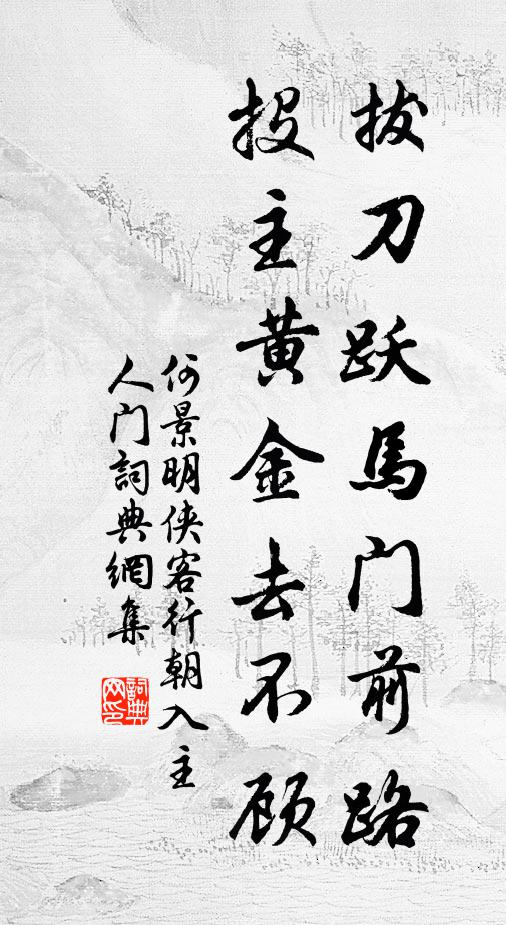 拔刀跃馬门前路
投主黄金去不顾
何景明侠客行朝入主
人门詞典網集
詞典
网印